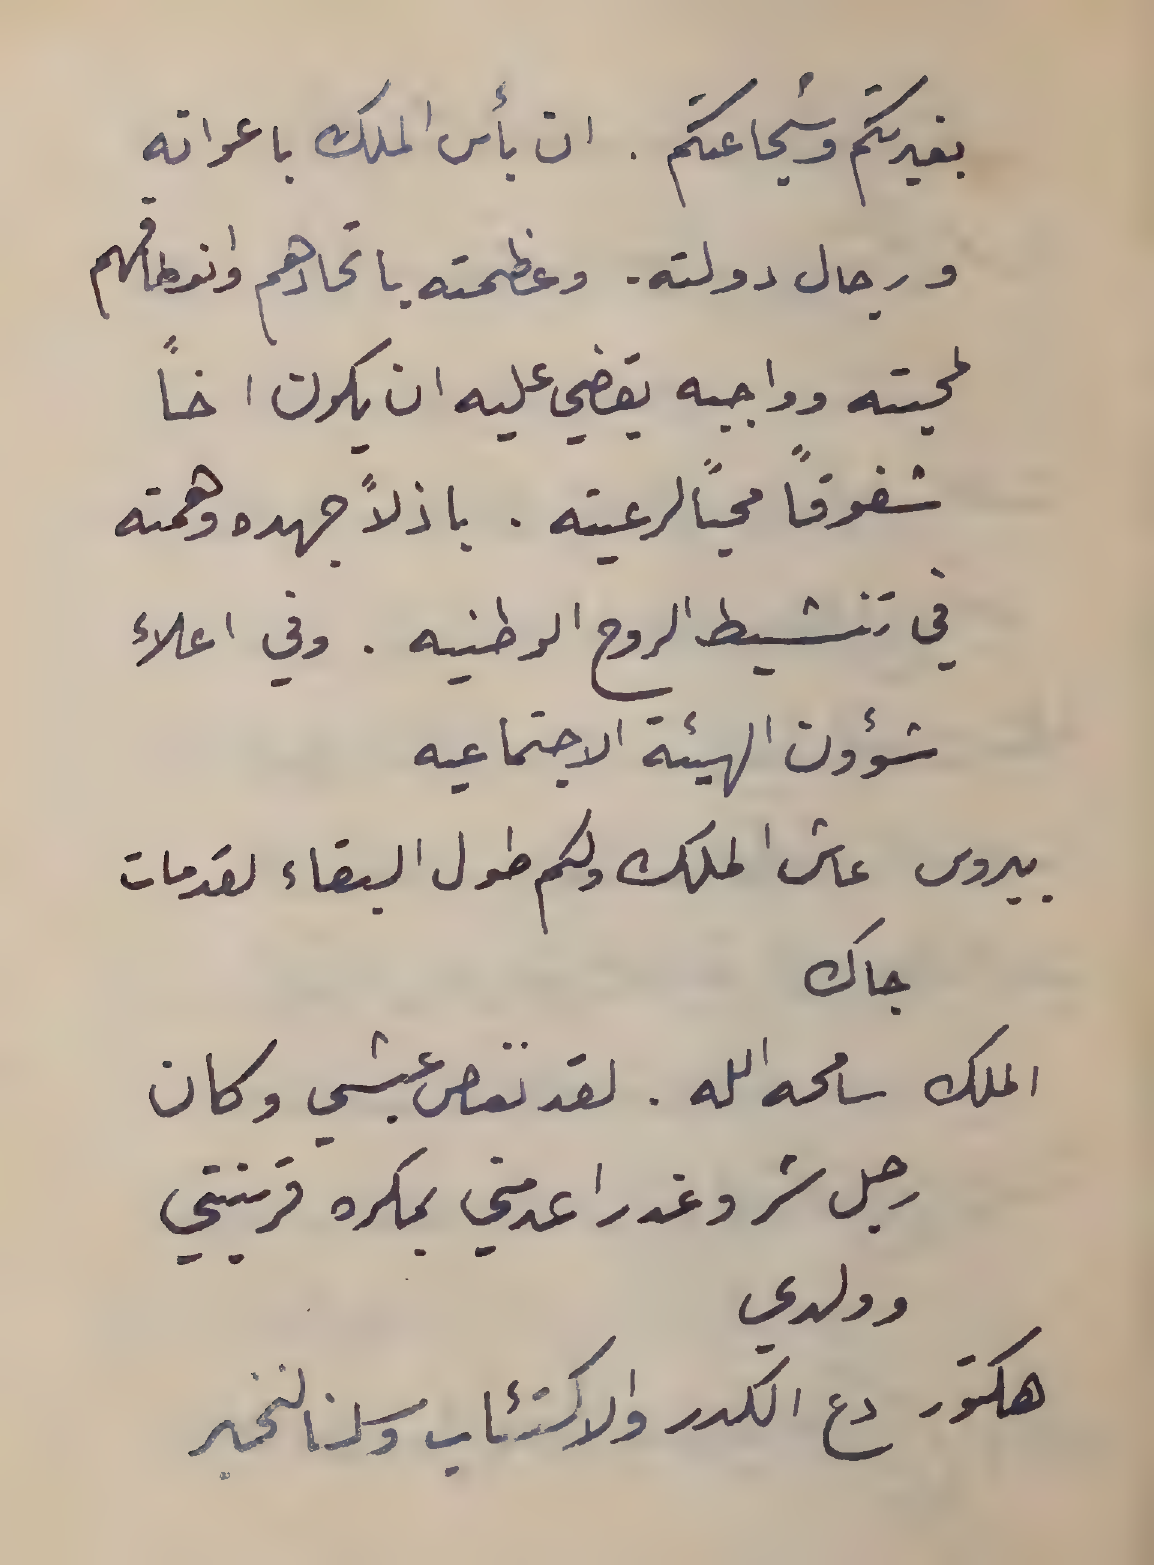 بغيرتكم وشجاعتكم . ان بأس الملك باعوانه
ورجال دولته . وعظمته باتحادهم وانعطافهم
لمحبته وواجبه يقضي عليه ان يكون اخاً
شفوقاً محباً لرعيته . باذلاً جهده وهمته
في تنشيط الروح الوطنيه . وفي اعلاء
شؤون الهيئة الاجتماعيه
بيروس عاش الملك ولكم طول البقاء لقدمات
جاك
الملك سامحه الله . لقد نغص عيشي وكان
رجل شر وغدر اعدمني بمكره قرينتي
وولدي
هكتور دع الكدر والاكتئاب وسلنا لنخبر